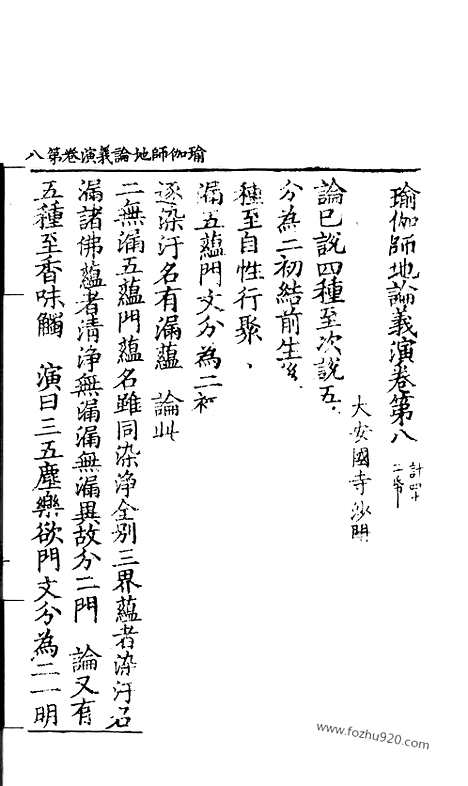 瑜伽師地論義演卷第八
瑜伽師地論義演卷第八 計四十二帋
大安國寺沙門
論已說四種至次說五
分為二初結前生後
種至自性行聚
漏五蘊門文分為二初
逐染汙名有漏蘊 論此
二無漏五蘊門蘊名雖同染淨全別三界蘊者染汙名
漏諸佛蘊者清淨無漏漏無漏異故分二門 論又有
五種至香味觸 演曰三五塵樂欲門文分為二一明
www.fozhu920.com